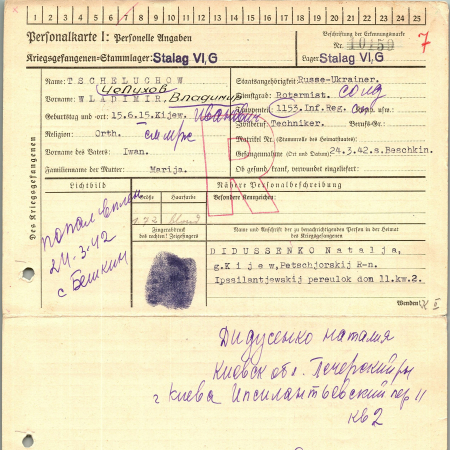 1 2 3 4 5 6 7 8 9 10 11 12 13 14 15 16 17 18 19 20 21 22 23 24 25
Personalkarte I: Personelle Angaben
Kriegsgefangenen-Stammlager: Stalag VI,G
Beschriftung der Erkennungsmarke
Nr. 10150
7
Lager: Stalag VI,G
Des Kriegsgefangenen
Name: TSCHELUCHOW
Vorname: WLADIMIR, Владимир
Geburtstag und -ort: 15.6.15.Kijew, Иванович
Religion: Orth.
Vorname des Vaters: Iwan.
Familienname der Mutter: Marija.
Staatsangehörigkeit: Russe-Ukrainer.
Dienstgrad: Rotarmist. солд
Truppenteil: 1153.Inf.Reg. Kom. usw.:
Zivilberuf: Techniker. Berufs-Gr.:
Matrikel Nr. (Stammrolle des Heimatstaates):
Gefangennahme (Ort und Datum): 24.3.42.a.Beschkin.
Ob gesund, krank, verwundet eingeliefert:
Lichtbild
Nähere Personalbeschreibung
Größe Haarfarbe
Besondere Kennzeichen:
R
1.72 blond
попал в плен
24-3-42
с Бешкин
Fingerabdruck
des rechten! Zeigefingers
Name und Anschrift der zu benachrichtigenden Person in der Heimat
des Kriegsgefangenen
DIDUSSENKO Natalja,
g.Kijew,Petschjorskij R-n.
Ipssilantjewskij pereulok dom 11.kw.2.
Wenden!
Дидусенко наталия
Киевск обл. Печерский рн
г Киева Ипсилантьевский пер 11
кв 2